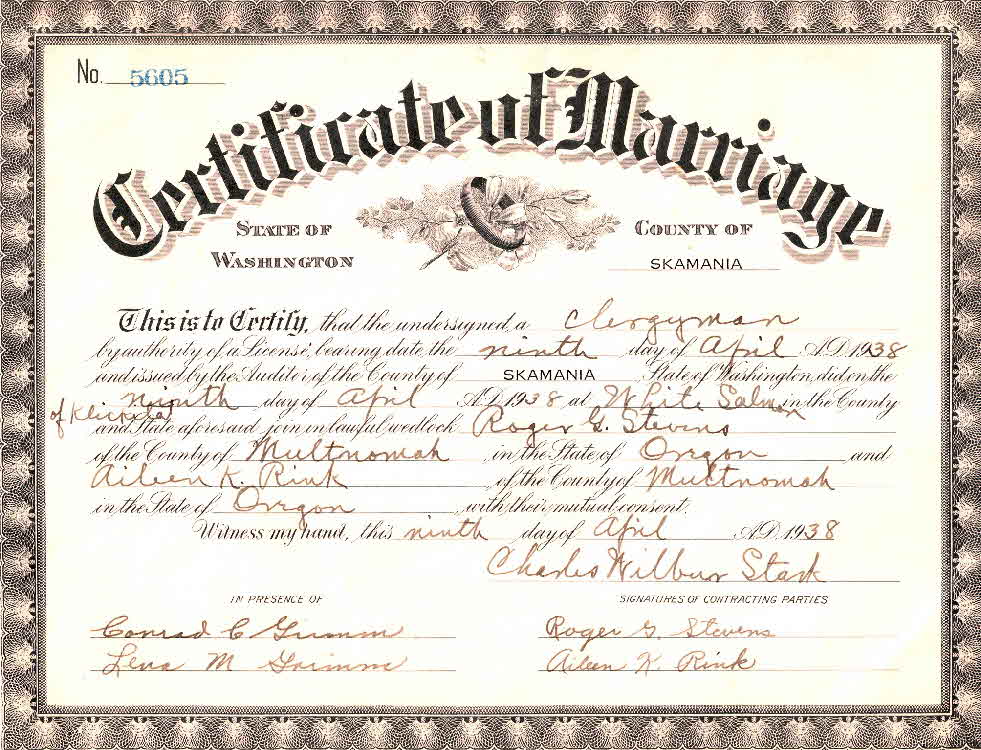 No. 5605
Certificate of Marriage
STATE OF WASHINGTON
COUNTY OF SKAMANIA
This is to Certify, that the undersigned, a Clergyman
by authority of a License, bearing date the ninth day of April A.D. 1938
and issued by the Auditor of the County of SKAMANIA State of Washington, did on the
ninth day of April A.D. 1938 at White Salmon in the County
of Klickitat
and State aforesaid join in lawful wedlock Roger G. Stevens
of the County of Multnomah in the State of Oregon and
Aileen K. Rink of the County of Multnomah
in the State of Oregon with their mutual consent.
Witness my hand, this ninth day of April A.D. 1938
Charles Wilbur Stark
IN PRESENCE OF
SIGNATURES OF CONTRACTING PARTIES
Conrad C Grimm
Roger G. Stevens
Lena M Grimm
Aileen K. Rink